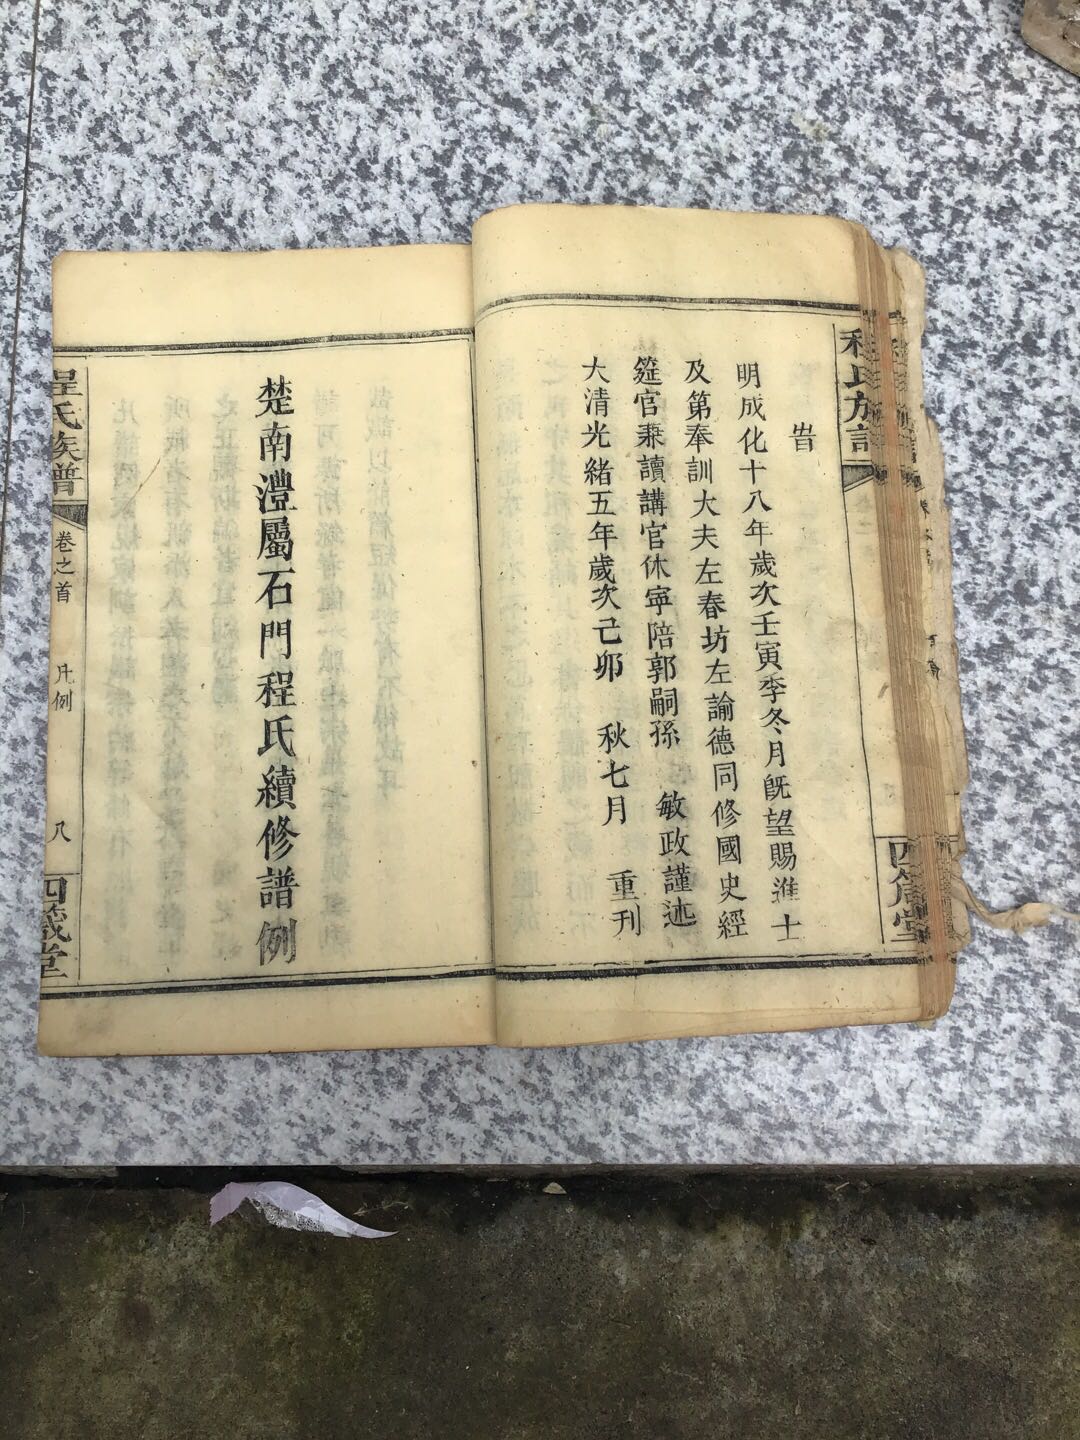 旹
明成化十八年歲次壬寅季冬月旣望賜進士
及第奉訓大夫左春坊左諭德同修國史經
筵官兼讀講官休寧陪郭嗣孫 敏政謹述
大清光緒五年歲次己卯 秋七月 重刊
楚南澧屬石門程氏續修譜例
程氏族譜 卷之首 凡例 八